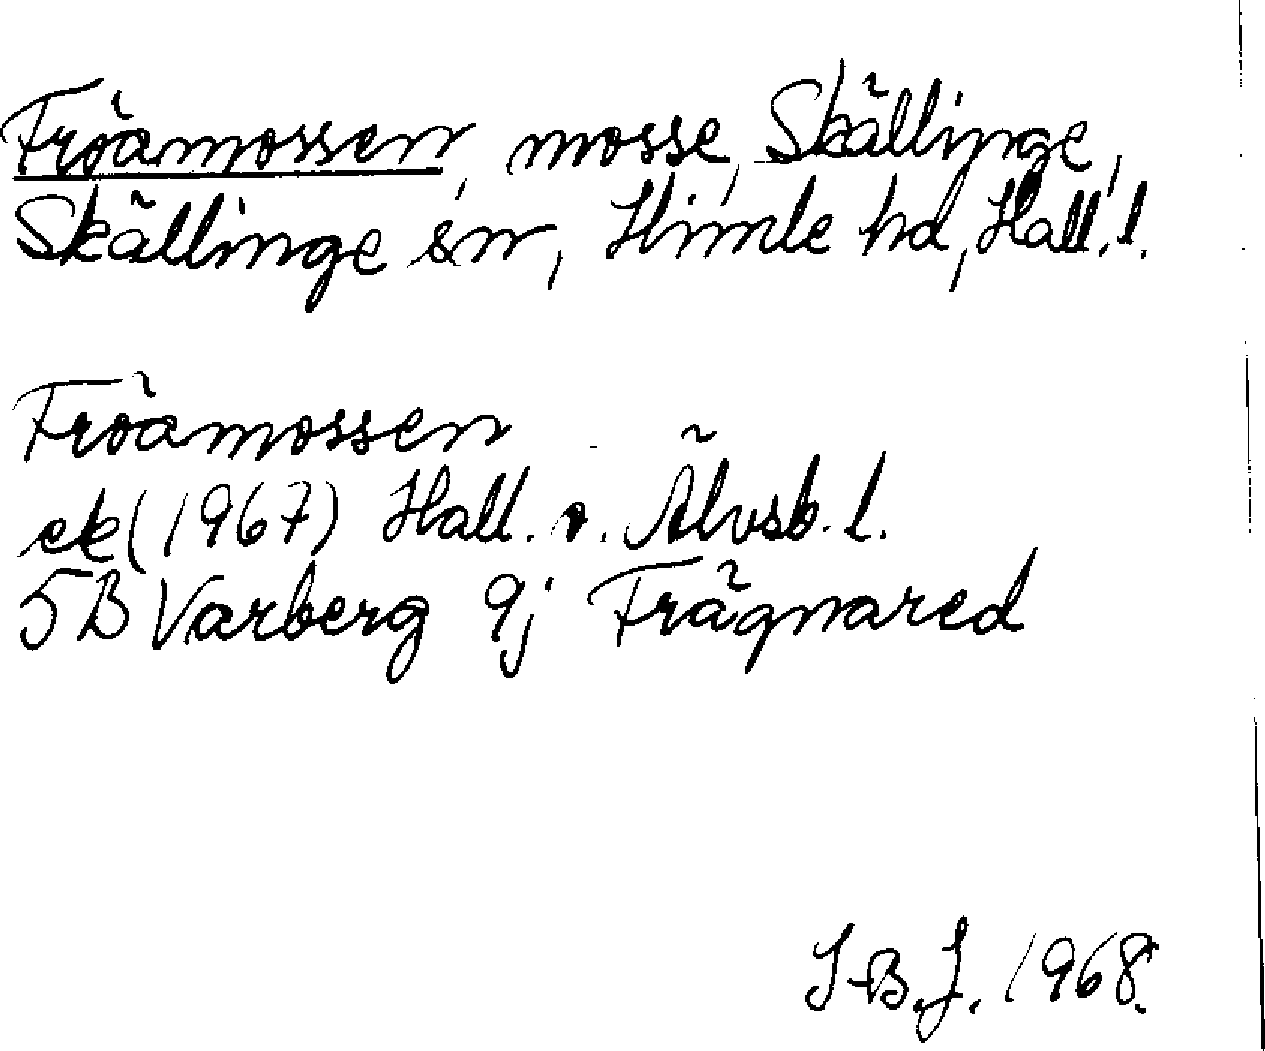 Fröamossen, mosse, Skällinge,
Skällinge sn, Himle hd, Hall. l.
Fröamossen
ek (1967) Hall. o. Älvsb. l.
5B Varberg 9j Frägnared
I-B.J. 1968.